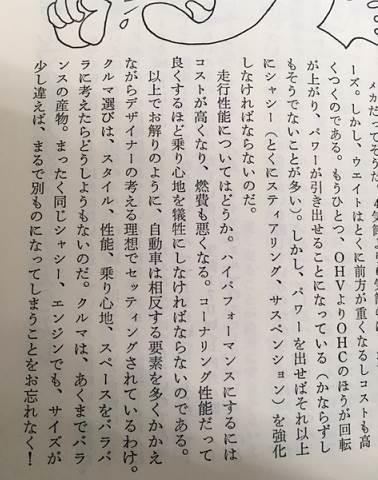 メカだってそうだ。4気筒より6気筒のほ
ーズ。しかし、ウエイトはとくに前方が重くなるしコストも高
くつくのである。もうひとつ、OHVよりOHCのほうが回転
が上がり、パワーが引き出せることになっている(かならずし
もそうでないことが多い)。しかし、パワーを出せばそれ以上
にシャシー(とくにスティアリング、サスペンション)を強化
しなければならないのだ。
走行性能についてはどうか。ハイパフォーマンスにするには
コストが高くなり、燃費も悪くなる。コーナリング性能だって
良くするほど乗り心地を犠牲にしなければならないのである。
以上でお解りのように、自動車は相反する要素を多くかかえ
ながらデザイナーの考える理想でセッティングされているわけ。
クルマ選びは、スタイル、性能、乗り心地、スペースをバラバ
ラに考えたらどうしようもないのだ。クルマは、あくまでバラ
ンスの産物。まったく同じシャシー、エンジンでも、サイズが
少し違えば、まるで別ものになってしまうことをお忘れなく!